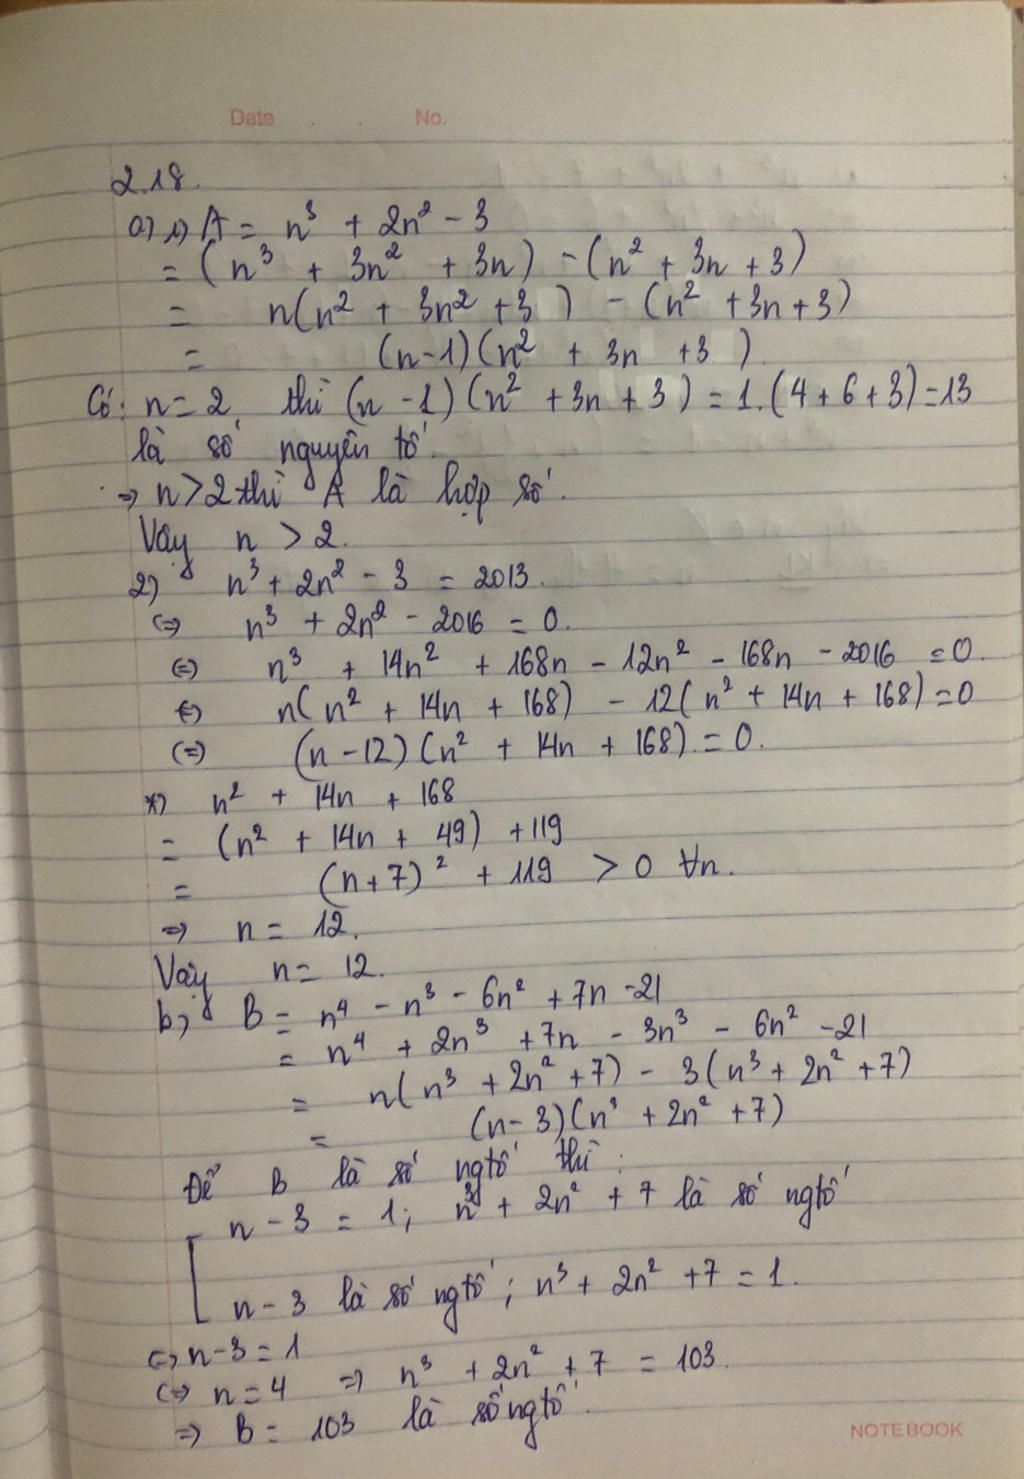 Date . . No.
2.18.
a) 1) A = n³ + 2n² - 3
= (n³ + 3n² + 3n) - (n² + 3n + 3)
= n(n² + 3n² + 3) - (n² + 3n + 3)
= (n-1)(n² + 3n + 3)
Có: n = 2 thì (n - 1)(n² + 3n + 3) = 1.(4 + 6 + 3) = 13
là số nguyên tố.
⇒ n > 2 thì A là hợp số.
Vậy n > 2.
2) n³ + 2n² - 3 = 2013.
⇔ n³ + 2n² - 2016 = 0.
⇔ n³ + 14n² + 168n - 12n² - 168n - 2016 = 0.
⇔ n(n² + 14n + 168) - 12(n² + 14n + 168) = 0
⇔ (n - 12)(n² + 14n + 168) = 0.
*) n² + 14n + 168
= (n² + 14n + 49) + 119
= (n + 7)² + 119 > 0 ∀n.
⇒ n = 12.
Vậy n = 12.
b, B = n⁴ - n³ - 6n² + 7n - 21
= n⁴ + 2n³ + 7n - 3n³ - 6n² - 21
= n(n³ + 2n² + 7) - 3(n³ + 2n² + 7)
= (n - 3)(n³ + 2n² + 7)
Để B là số ngtố thì:
n - 3 = 1; n³ + 2n² + 7 là số ngtố
n - 3 là số ngtố; n³ + 2n² + 7 = 1.
⇔ n - 3 = 1
⇔ n = 4 ⇒ n³ + 2n² + 7 = 103.
⇒ B = 103 là số ngtố.
NOTEBOOK